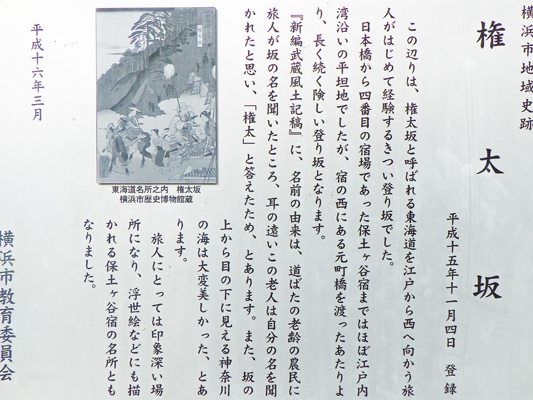 横浜市地域史跡
権太坂
平成十五年十一月四日 登録
この辺りは、権太坂と呼ばれる東海道を江戸から西へ向かう旅
人がはじめて経験するきつい登り坂でした。
日本橋から四番目の宿場であった保土ヶ谷宿まではほぼ江戸内
湾沿いの平坦地でしたが、宿の西にある元町橋を渡ったあたりよ
り、長く続く険しい登り坂となります。
『新編武蔵風土記稿』に、名前の由来は、道ばたの老齢の農民に
旅人が坂の名を聞いたところ、耳の遠いこの老人は自分の名を聞
かれたと思い、「権太」と答えたため、とあります。また、坂の
上から目の下に見える神奈川
の海は大変美しかった、とあ
ります。
旅人にとっては印象深い場
所になり、浮世絵などにも描
かれる保土ヶ谷宿の名所とも
なりました。
東海道名所之内 権太坂
横浜市歴史博物館蔵
平成十六年三月
横浜市教育委員会